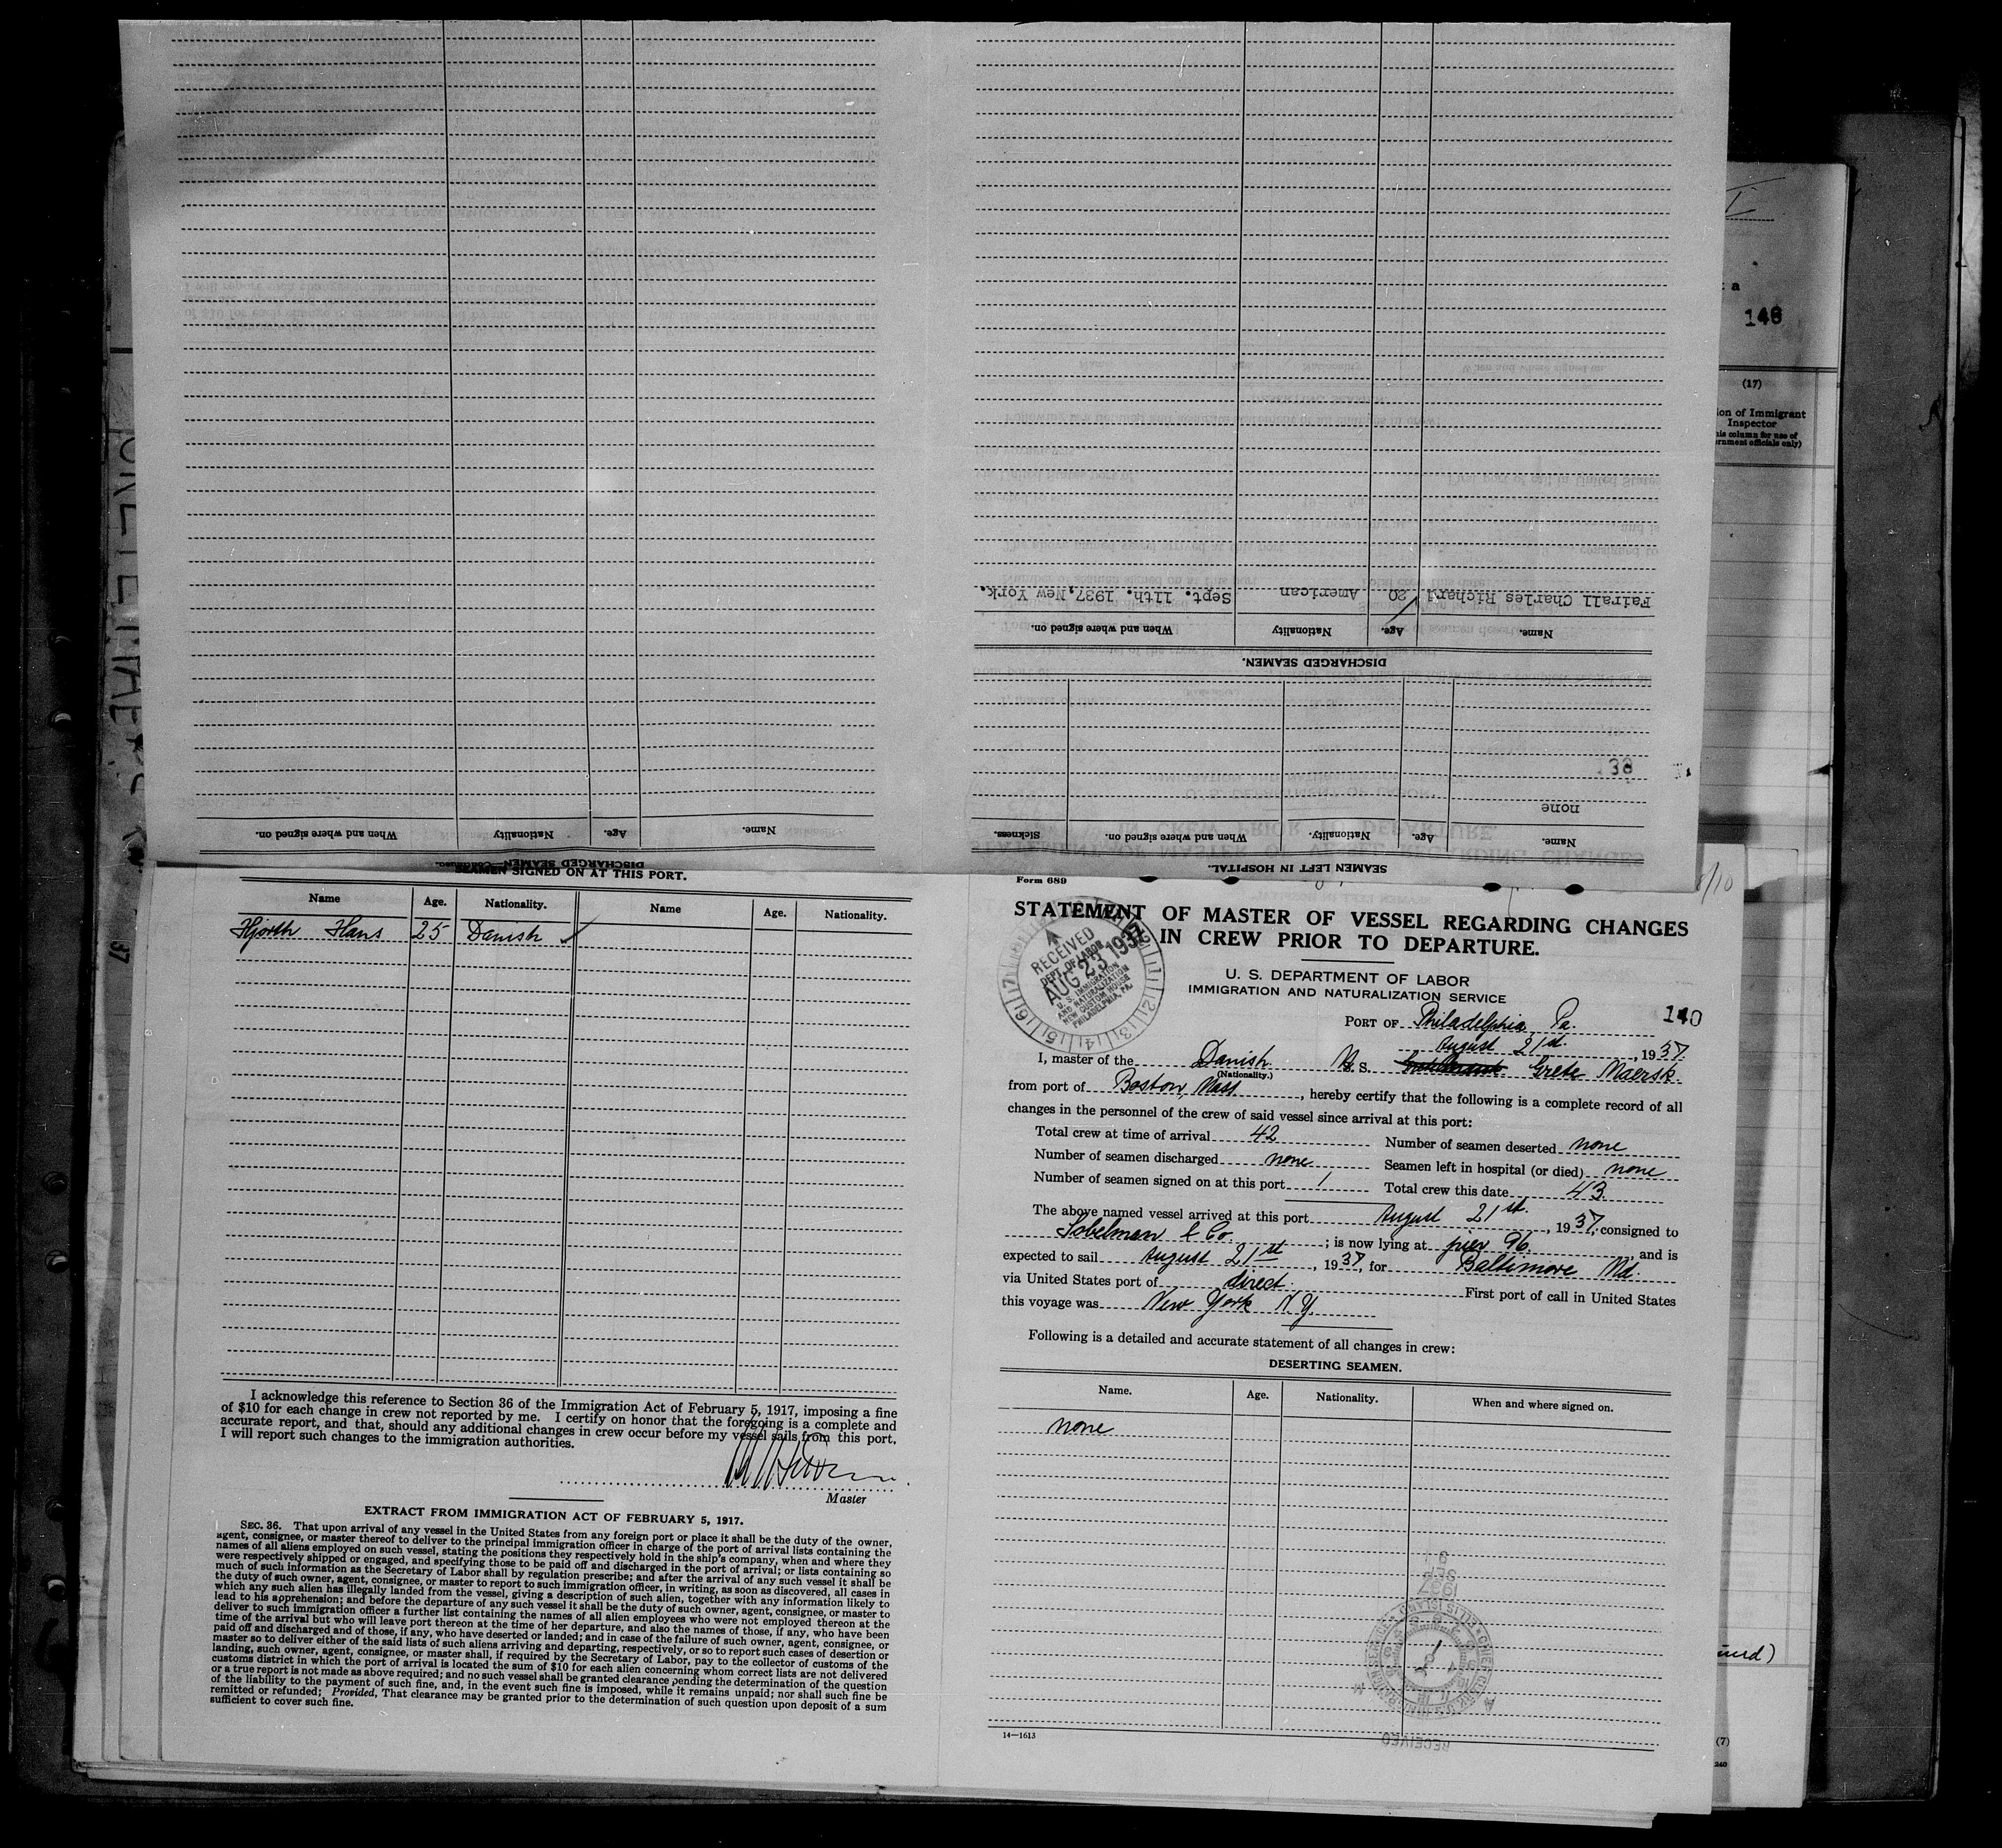 DISCHARGED SEAMEN—Continued.
Name.
Age.
Nationality
When and where signed on.
SEAMEN LEFT IN HOSPITAL.
Name.
Age.
Nationality.
When and where signed on.
Sickness.
none
38
DISCHARGED SEAMEN.
Name.
Age.
Nationality
When and where signed on.
Fairall Charles Richard 20 American Sept. 11th. 1937, New York.
148
(17)
ion of Immigrant
Inspector
his column for use of
ernment officials only)
SEAMEN SIGNED ON AT THIS PORT.
Name
Age.
Nationality.
Name
Age.
Nationality.
Hjorth Hans 25 Danish
I acknowledge this reference to Section 36 of the Immigration Act of February 5, 1917, imposing a fine
of $10 for each change in crew not reported by me. I certify on honor that the foregoing is a complete and
accurate report, and that, should any additional changes in crew occur before my vessel sails from this port,
I will report such changes to the immigration authorities.
Master
EXTRACT FROM IMMIGRATION ACT OF FEBRUARY 5, 1917.
SEC. 36. That upon arrival of any vessel in the United States from any foreign port or place it shall be the duty of the owner,
agent, consignee, or master thereof to deliver to the principal immigration officer in charge of the port of arrival lists containing the
names of all aliens employed on such vessel, stating the positions they respectively hold in the ship's company, when and where they
were respectively shipped or engaged, and specifying those to be paid off and discharged in the port of arrival; or lists containing so
much of such information as the Secretary of Labor shall by regulation prescribe; and after the arrival of any such vessel it shall be
the duty of such owner, agent, consignee, or master to report to such immigration officer, in writing, as soon as discovered, all cases in
which any such alien has illegally landed from the vessel, giving a description of such alien, together with any information likely to
lead to his apprehension; and before the departure of any such vessel it shall be the duty of such owner, agent, consignee, or master to
deliver to such immigration officer a further list containing the names of all alien employees who were not employed thereon at the
time of the arrival but who will leave port thereon at the time of her departure, and also the names of those, if any, who have been
paid off and discharged and of those, if any, who have deserted or landed; and in case of the failure of such owner, agent, consignee, or
master so to deliver either of the said lists of such aliens arriving and departing, respectively, or so to report such cases of desertion or
landing, such owner, agent, consignee, or master shall, if required by the Secretary of Labor, pay to the collector of customs of the
customs district in which the port of arrival is located the sum of $10 for each alien concerning whom correct lists are not delivered
or a true report is not made as above required; and no such vessel shall be granted clearance pending the determination of the question
of the liability to the payment of such fine, and, in the event such fine is imposed, while it remains unpaid; nor shall such fine be
remitted or refunded; Provided, That clearance may be granted prior to the determination of such question upon deposit of a sum
sufficient to cover such fine.
Form 689
STATEMENT OF MASTER OF VESSEL REGARDING CHANGES
IN CREW PRIOR TO DEPARTURE.
U. S. DEPARTMENT OF LABOR
IMMIGRATION AND NATURALIZATION SERVICE
RECEIVED
DEPT. OF LABOR
AUG 23 1937
U. S. IMMIGRATION
AND NATURALIZATION
NEW CUSTOM HOUSE
PHILADELPHIA, PA.
140
PORT OF Philadelphia, Pa.
August 21st. , 1937.
I, master of the Danish M. S. Grete Maersk
(Nationality.)
from port of Boston, Mass. , hereby certify that the following is a complete record of all
changes in the personnel of the crew of said vessel since arrival at this port:
Total crew at time of arrival 42 Number of seamen deserted none
Number of seamen discharged none Seamen left in hospital (or died) none
Number of seamen signed on at this port 1 Total crew this date 43
The above named vessel arrived at this port August 21st. , 1937, consigned to
Sobelman & Co. ; is now lying at pier 96 , and is
expected to sail August 21st , 1937, for Baltimore Md.
via United States port of direct. First port of call in United States
this voyage was New York N.Y.
Following is a detailed and accurate statement of all changes in crew:
DESERTING SEAMEN.
Name.
Age.
Nationality.
When and where signed on.
none
RECEIVED
14—1613
(7)